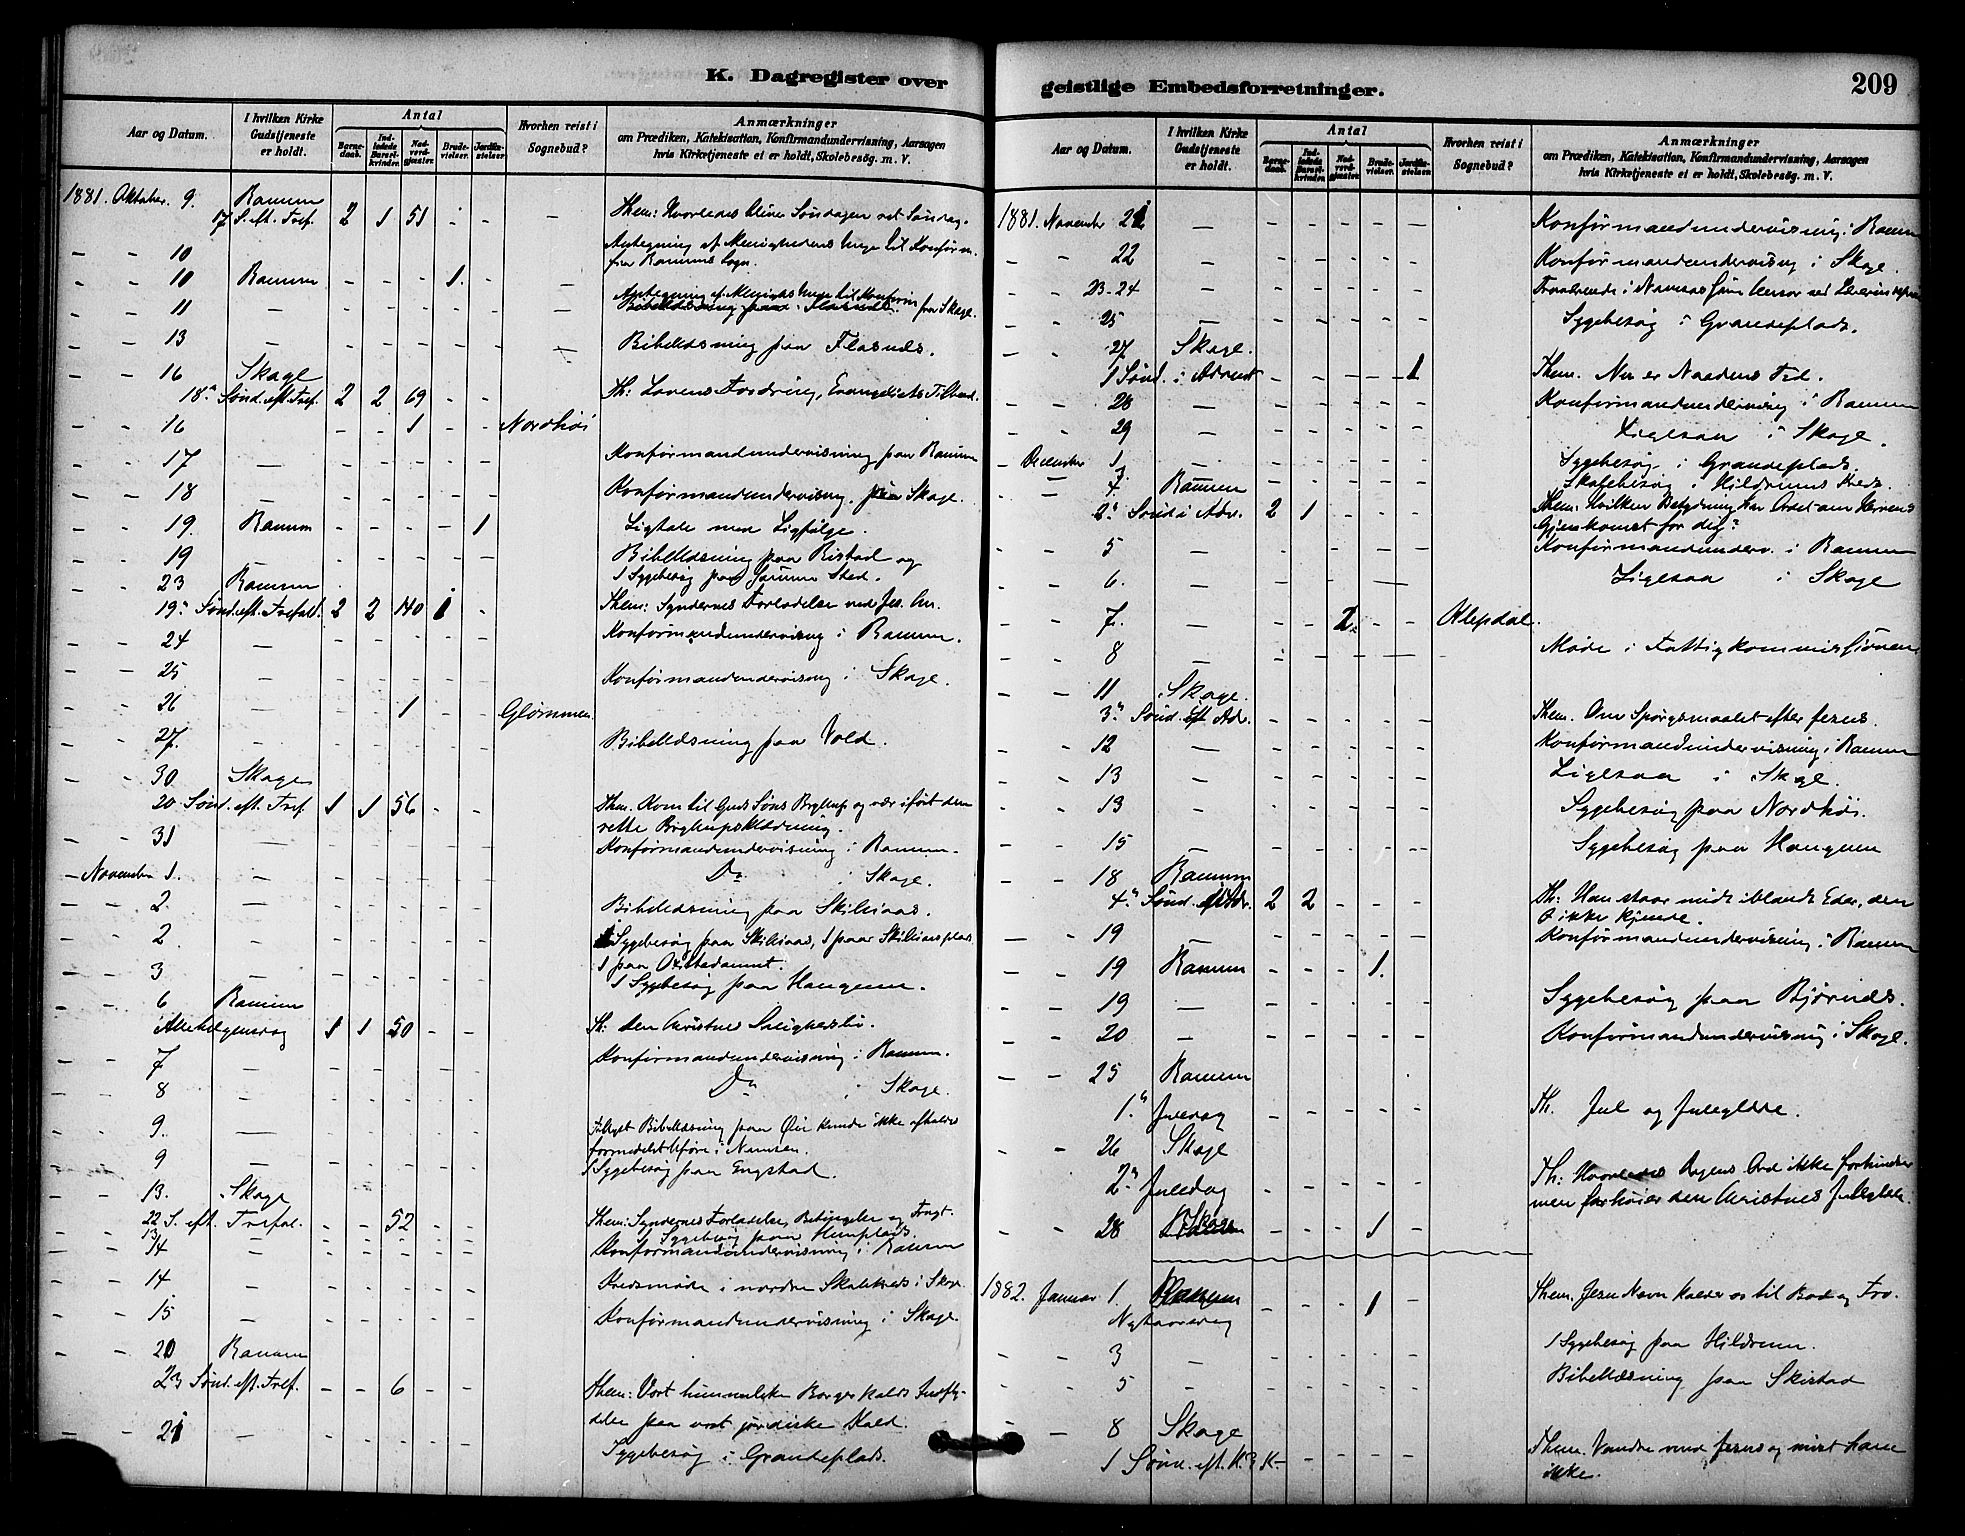 K. Dagregister over
Aar og Datum.
I hvilken Kirke Gudstjeneste er holdt.
Antal
Barnedaab.
Indledede Barselkvinder.
Nadverdgjester.
Brudevielser.
Jordfæstelser.
Hvorhen reist i Sognebud?
Anmærkninger
om Prædiken, Katekisation, Konfirmandundervisning, Aarsagen
hvis Kirketjeneste ei er holdt, Skolebesøg. m. V.
1881. Oktober. 9. Ranum
17 S. eft. Tref. 2 1 51 - - - Them: Hvorledes bliver Søndagen ret Søndag.
- - 10 Antegning af Menighedens Unge til Konfirm.
fra Ranums Sogn.
- - 10 Ranum - - - 1. - -
- - 11 - - - - - - - Antegning af Menighds Unge til Konfirm
fra Skage.
- - 13 - - - - - - - Bibellæsning paa Flasnes.
- - 16 Skage
18de Sønd. eft. Tref. 2 2 69 - - Th: Lovens Fordring, Evangeliets Tilbud.
- - 16 - - 1 - - Nordhøi
- - 17 - - - - - - Konfirmandundervisning paa Ranum
- - 18 - - - - - - Konfirmandundervisng. paa Skage.
- - 19. Ranum - - - - 1 Ligtale med Ligfølge.
- - 19 - - - - - Bibellæsning paa Ristad og
1 Sygebesøg paa samme Sted.
- - 23 Ranum
19de Sønd. eft. Trefold. 2 2 140 1 - Them: Syndernes Forladelse ved Jes. Chr.
- - 24 - - - - - - Konfirmandundervisng i Ranum.
- - 25 - - - - - - Konfirmandundervisng i Skage.
- - 26 - - - 1 - - Glømmen
- - 27. - - - - - - Bibellæsning paa Vold.
- - 30 Skage
20 Sønd. eft. Tref. 1 1 56 - - Them. Kom til Guds Søns Bryllup og vær iført den
rette Bryllupsklædning.
- - 31 - - - - - - Konfirmandundervisning i Ranum.
- November 1. - - - - - - Do i Skage.
- - 2. - - - - - - Bibellæsning paa Skiliaas.
- - 2 - - - - - - 1 Sygebesøg paa Skiliaas, 1 paa Skiliaasplads
- - 3 - - - - - - 1 Sygebesøg paa Haugum.
- - 6 Ranum
Allehelgensdag 1 1 50 - - Th: Den Christnes Salighedsliv.
- - 7 - - - - - - Konfirmandundervisning i Ranum.
- - 8 - - - - - - Do i Skage.
- - 9. - - - - - - Bibellæsning paa Øie kunde ikke afholdes
formedelst Uføre i Namsen.
- - 9 - - - - - - 1 Sygebesøg paa Engstad.
- - 13. Skage
22 S. eft. Trefol. - - 52 - - Them: Syndernes Forladelse, Betingelse og Frugt.
13 - - - - - - Sygebesøg paa
- - 14 - - - - - - Konfirmandundervisning i Ranum
- - 14 - - - - - - Kredsmøde i nordre Skolekreds i Skage
- - 15 - - - - - - Konfirmandundervisning i Skage.
- - 20 Ranum
23 Sønd. eft. Tref. - - 6 - - Them: Vort himmelske Borgerkalds Indfly-
delse paa vort jordiske Kald.
- - 21 - - - - - - Sygebesøg i Grandeplads.
geistlige Embedsforretninger.
209
Aar og Datum.
I hvilken Kirke Gudstjeneste er holdt.
Antal
Barnedaab.
Indledede Barselkvinder.
Nadverdgjester.
Brudevielser.
Jordfæstelser.
Hvorhen reist i Sognebud?
Anmærkninger
om Prædiken, Katekisation, Konfirmandundervisning, Aarsagen
hvis Kirketjeneste ei er holdt, Skolebesøg. m. V.
1881. November 21 - - - - - - Konfirmandundervisning i Ranum
- - 22 - - - - - - Konfirmandundervisng i Skage.
- - 23-24 - - - - - -
- - 25 - - - - - - Sygebesøg i Grandeplads.
- - 27 Skage.
1 Sønd. i Advent - - - - 1 Them. Nu er Naadens Tid.
- - 28 - - - - - - Konfirmandundervisng i Ranum
- - 29 - - - - - - Ligesaa i Skage.
- December 1 - - - - - - Sygebesøg i Grandeplads.
Skolebesøg i Hildrums Kreds.
- 4. Ranum
2den Sønd i Adv. 2 1 - - - Them: Hvilken Betydning har Ordet om Herrens
Gjenkomst for dig?
- - 5 - - - - - - Konfirmandunderv. i Ranum
- - 6. - - - - - - Ligesaa i Skage
- - 7. - - - 2. - - Klepdal.
- - 8 - - - - - - Møde i Fattigkommissionen
- - 11 Skage.
3de Sønd. Adv. - - - - - Them. Om Spørgsmaalet efter Jesus.
- - 12 - - - - - - Konfirmandundervisning i Ranum
- - 13 - - - - - - Ligesaa i Skage.
- - 13 - - - - - Sygebesøg paa Nordhøi.
- - 15 - - - - - - Sygebesøg paa Haugum
- - 18 Ranum
4de Sønd. Adv. 2 2 - - - Th: Han staar midt iblandt Eder, den
I ikke kjende.
- - 19 - - - - - - Konfirmandundervisning i Ranum
- - 19 Ranum - - - 1. -
- - 19 - - - - - - Sygebesøg paa Bjørnes.
- - 20 - - - - - - Konfirmandundervisning i Skage.
- - 25 Ranum
1ste Juledag - - - - - Th. Jul og Juleglæde.
- - 26 Skage
2den Juledag - - - - - Th: Hvorledes Dagens Ord ikke forhindrer
men forhøier den Christnes Juleglæde.
- - 28 Skage - - - 1 -
1882. Januar 1. Ranum - - - 1 - Them. Jesu Navn kalder os til Bod og Tro.
Nytaarsdag
- - 3 - - - - - - 1 Sygebesøg paa Hildrum.
- - 5 - - - - - - Bibellæsning paa Skistad
- - 8 Skage
1 Sønd. eft. H. 3 K. - - - - Them. Vandre med Jesus og mist ham
ikke.